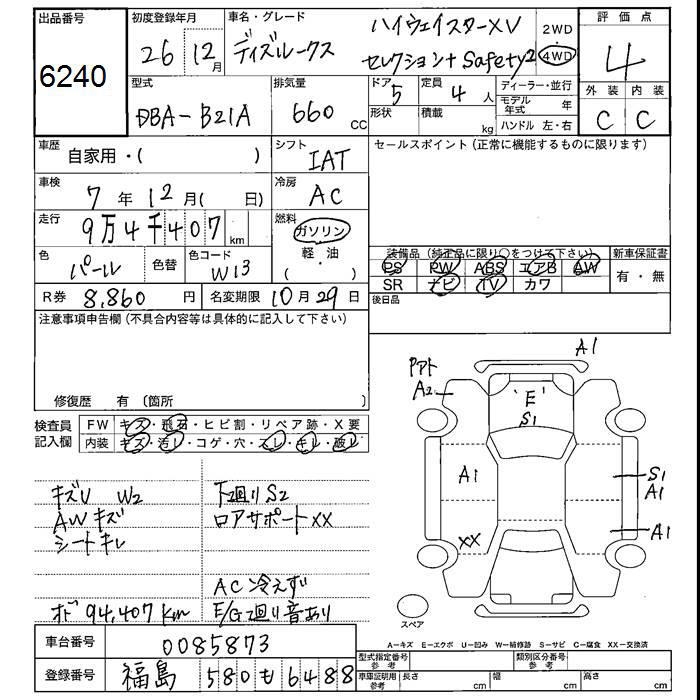 出品番号
6240
初度登録年月
26年12月
車名・グレード
ディズルークス ハイウェイスターXV
セレクション+ Safety2
2WD
4WD
評価点
4
外装 内装
C C
型式
DBA-B21A
排気量
660 CC
ドア 5
形状
定員 4 人
積載 kg
ディーラー・並行
モデル年式 年
ハンドル 左・右
車歴
自家用・( )
シフト
IAT
セールスポイント(正常に機能するものに限ります)
車検
7年12月( 日)
冷房
AC
走行
9万4千407 km
燃料
ガソリン
軽・油
( ・ )
色
パール
色替
色コード
W13
装備品(純正品に限り○をつけて下さい)
PS PW ABS エアB AW
SR ナビ TV カワ
新車保証書
有・無
R券 8,860 円
名変期限 10月29日
後日品
注意事項申告欄(不具合内容等は具体的に記入して下さい)
修復歴 有〔箇所
検査員記入欄
FW キズ・飛石・ヒビ割・リペア跡・X要
内装 キズ・汚レ・コゲ・穴・スレ・キレ・破レ
キズU W2
AWキズ
シートキレ
オド 94,407km
下廻りS2
ロアサポートXX
AC冷えず
E/G廻り音あり
A1
A2
'E'
S1
A1
S1
A1
A1
XX
スペア
A=キズ E=エクボ U=凹み W=補修跡 S=サビ C=腐食 XX=交換済
車台番号
0085873
登録番号
福島 580 も 6488
型式指定番号
参考
類別区分番号
参考
車庫証明用
参考
長さ cm
幅 cm
高さ cm